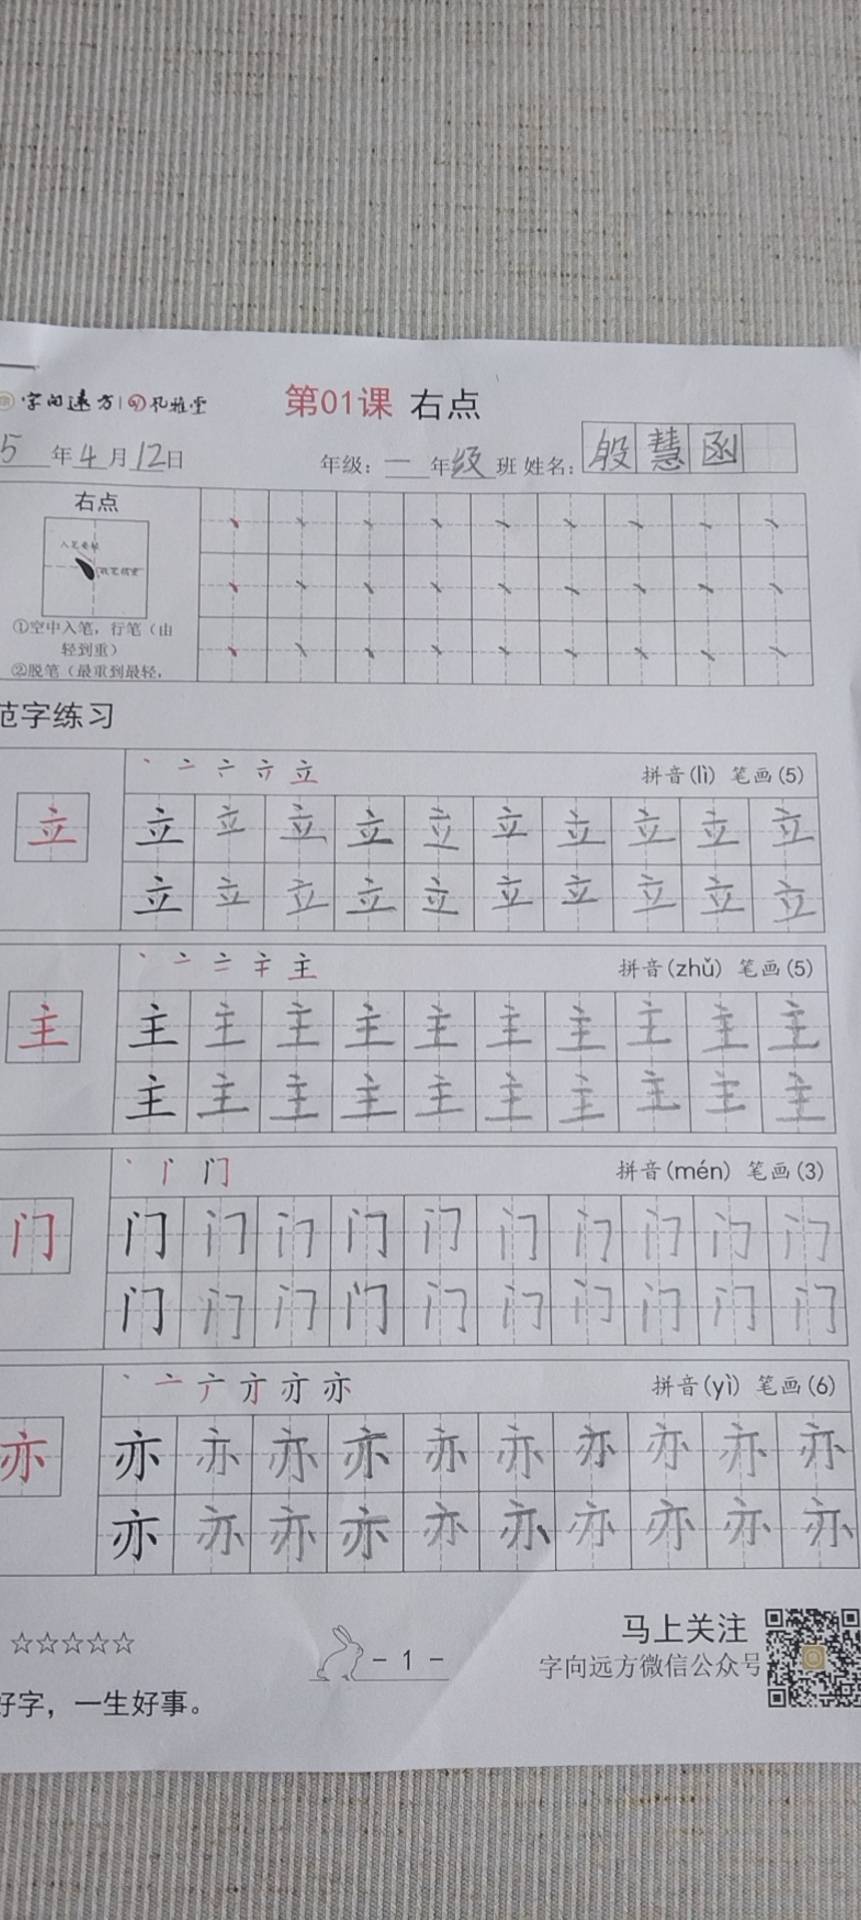 字向远方 孔雅堂
第01课 右点
5年4月12日 年级：一年级班 姓名：殷慧函
右点
①空中入笔，行笔（由
轻到重）
②脱笔（最重到最轻，
范字练习
丶 亠 立
拼音(lì) 笔画(5)
立 立 立 立 立 立 立 立 立 立 立
立 立 立 立 立 立 立 立 立 立
丶 亠 主
拼音(zhǔ) 笔画(5)
主 主 主 主 主 主 主 主 主 主 主
主 主 主 主 主 主 主 主 主 主
丶 门
拼音(mén) 笔画(3)
门 门 门 门 门 门 门 门 门 门 门
门 门 门 门 门 门 门 门 门 门
丶 亠 亦
拼音(yì) 笔画(6)
亦 亦 亦 亦 亦 亦 亦 亦 亦 亦 亦
亦 亦 亦 亦 亦 亦 亦 亦 亦 亦
☆☆☆☆☆
- 1 -
马上关注
字向远方微信公众号
好字，一生好事。